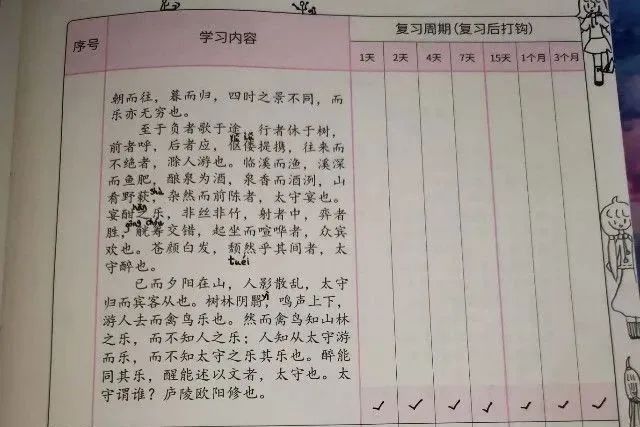 序号 学习内容 复习周期(复习后打钩)
1天 2天 4天 7天 15天 1个月 3个月
朝而往，暮而归，四时之景不同，而
乐亦无穷也。
至于负者歌于途，行者休于树，
前者呼，后者应，伛偻提携，往来而
不绝者，滁人游也。临溪而渔，溪深
而鱼肥，酿泉为酒，泉香而酒洌，山
肴野蔌，杂然而前陈者，太守宴也。
宴酣之乐，非丝非竹，射者中，弈者
胜，觥筹交错，起坐而喧哗者，众宾
欢也。苍颜白发，颓然乎其间者，太
守醉也。
tuéi
已而夕阳在山，人影散乱，太守
归而宾客从也。树林阴翳，鸣声上下，
游人去而禽鸟乐也。然而禽鸟知山林
之乐，而不知人之乐；人知从太守游
而乐，而不知太守之乐其乐也。醉能
同其乐，醒能述以文者，太守也。太
守谓谁？庐陵欧阳修也。